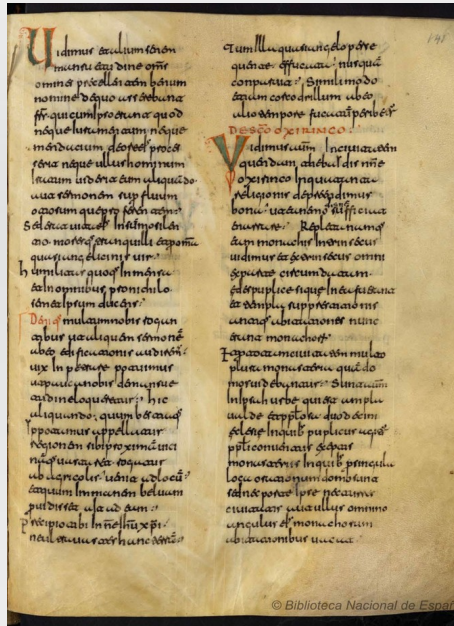 Uidimus et alium senem
mansuetudine oms
omines precellentem benum
nomine de quo asserebant
frs qui cum ipso erant quod
neque iuramentum neque
mendacium de ore eius proces
serit neque ullus hominum
iratum uiderit eum aliquando
aut sermonem superfluum
otiosum que proferentem
Sed erat uita ei in silentio
et moribus tranquilli et p omnia
quasi angelici uir
humilitas quoq immensa
et in omnibus pro nichilo
semetipsum ducens
Deniq multum nobis rogan
tibus ut aliquem sermone
ab eo edificationis audirem
uix impetrare potuimus
ut pauca nobis de mansue
tudine loqueretur hic
aliquando quum bestia
ippotamus appellatur
regionem sibi proximam
ut rogatur
ab agricolis uenit ad locum
et quum immanem beluam
uidisset ait ad eam
Precipio tibi in ne ihu xpi
ne ultra uastes hanc terram
Tum illa quasi angelo perse
quente effugata nusquam
conparuit Simili modo
etiam corcodrillum ab eo
alio tempore fugatum perhibent
DE SCO OXIRINCO
Uidimus ciuitatem
quendam tebaidis nme
oxirincum in qua tanta
religionis deprehendimus
bona ut enarrare sufficiat
enarrare Repletam namq
eam monachis intrinsecus
uidimus et extrinsecus omni
ex parte circumdatam
edes puplice si que in ea fuerant
et templa superstitionis
antiq habitationes nunc
erant monachor
Et per totam ciuitatem multo
plura monasteria quam do
mos uidebantur Sunt autem
in ipsa urbe quia est ampla
ualde et populosa duodecim
eclesie in quib puplicus agitur
ppli conuentus exceptis
monasteriis in quib per singula
loca orationum domus sunt
sed neq porte ipse neq turres
ciuitatis aut ullus omnino
angulus eius monachorum
habitationibus uacat
© Biblioteca Nacional de Españ